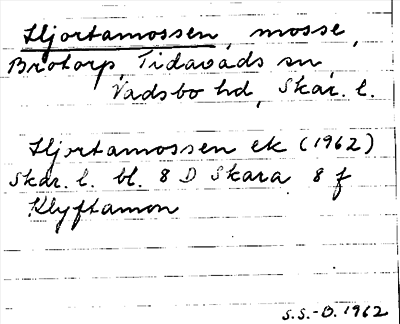 Hjortamossen, mosse,
Brotorp, Tidavads sn,
Vadsbo hd, Skar. l.
Hjortamossen ek (1962)
Skar. l. bl. 8 D Skara 8 f
Klyftamon
S.S.-B. 1962